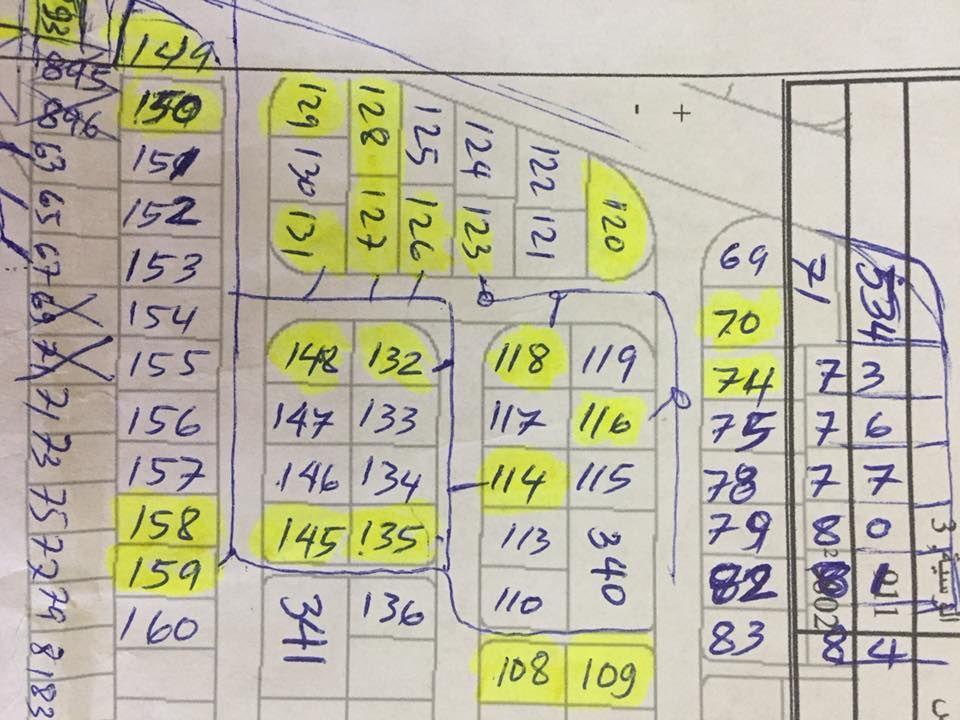 93
895
896
63
65
67
69
71
71
73
75
77
79
81
83
149
150
151
152
153
154
155
156
157
158
159
160
129
130
131
128
127
125
126
124
123
122
121
120
148 132
147 133
146 134
145 135
341 136
118 119
117 116
114 115
113 340
110
108 109
69
70
74
75
78
79
82
83
71
534
73
76
77
80
81
84
- +